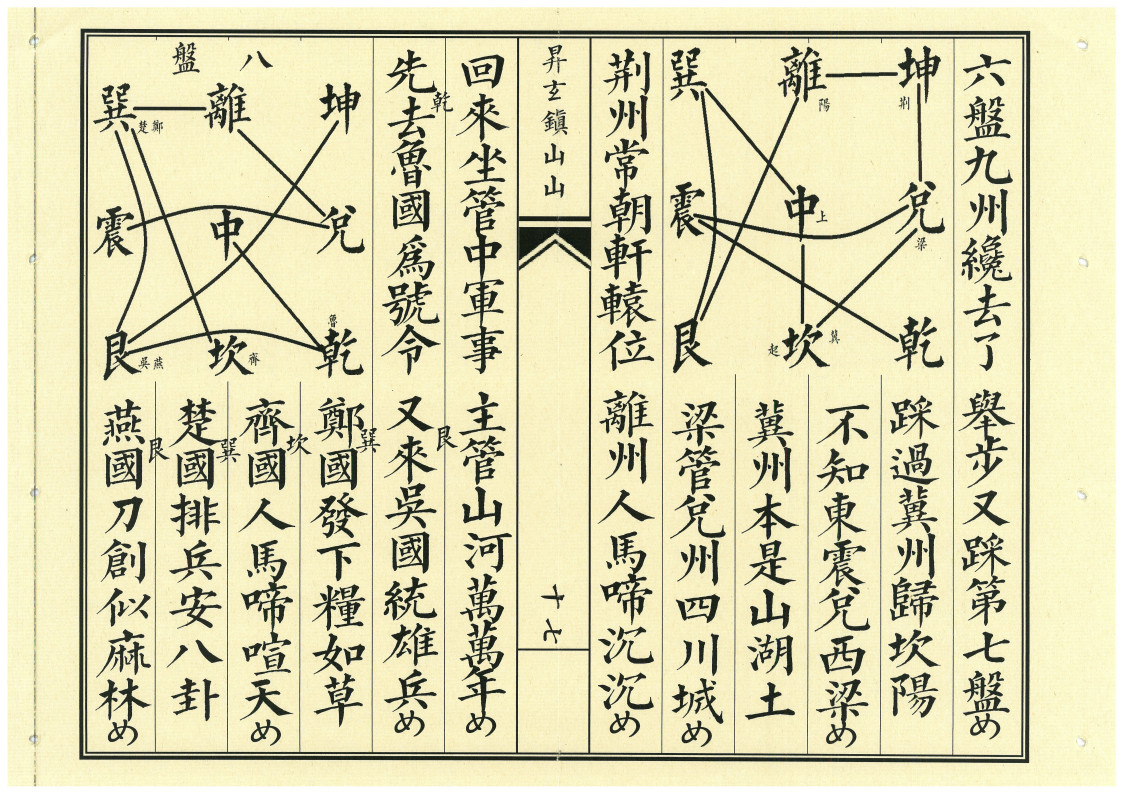 六盤九州纔去了
舉步又踩第七盤め
坤 荆 離 陽 巽
兌 梁 中 上 震
乾 坎 冀 起 艮
踩過冀州歸坎陽
不知東震兌西梁め
冀州本是山湖土
梁管兌州四川城め
荆州常朝軒轅位
離州人馬啼沉沉め
昇玄鎮山山
十七
回來坐管中軍事
主管山河萬萬年め
先去魯國爲號令
乾
又來吳國統雄兵め
艮
八盤
坤 離 巽 鄭 楚
兌 中 震
乾 魯 坎 齊 艮 燕 吳
鄭國發下糧如草
巽
齊國人馬啼喧天め
坎
楚國排兵安八卦
巽
燕國刀創似麻林め
艮